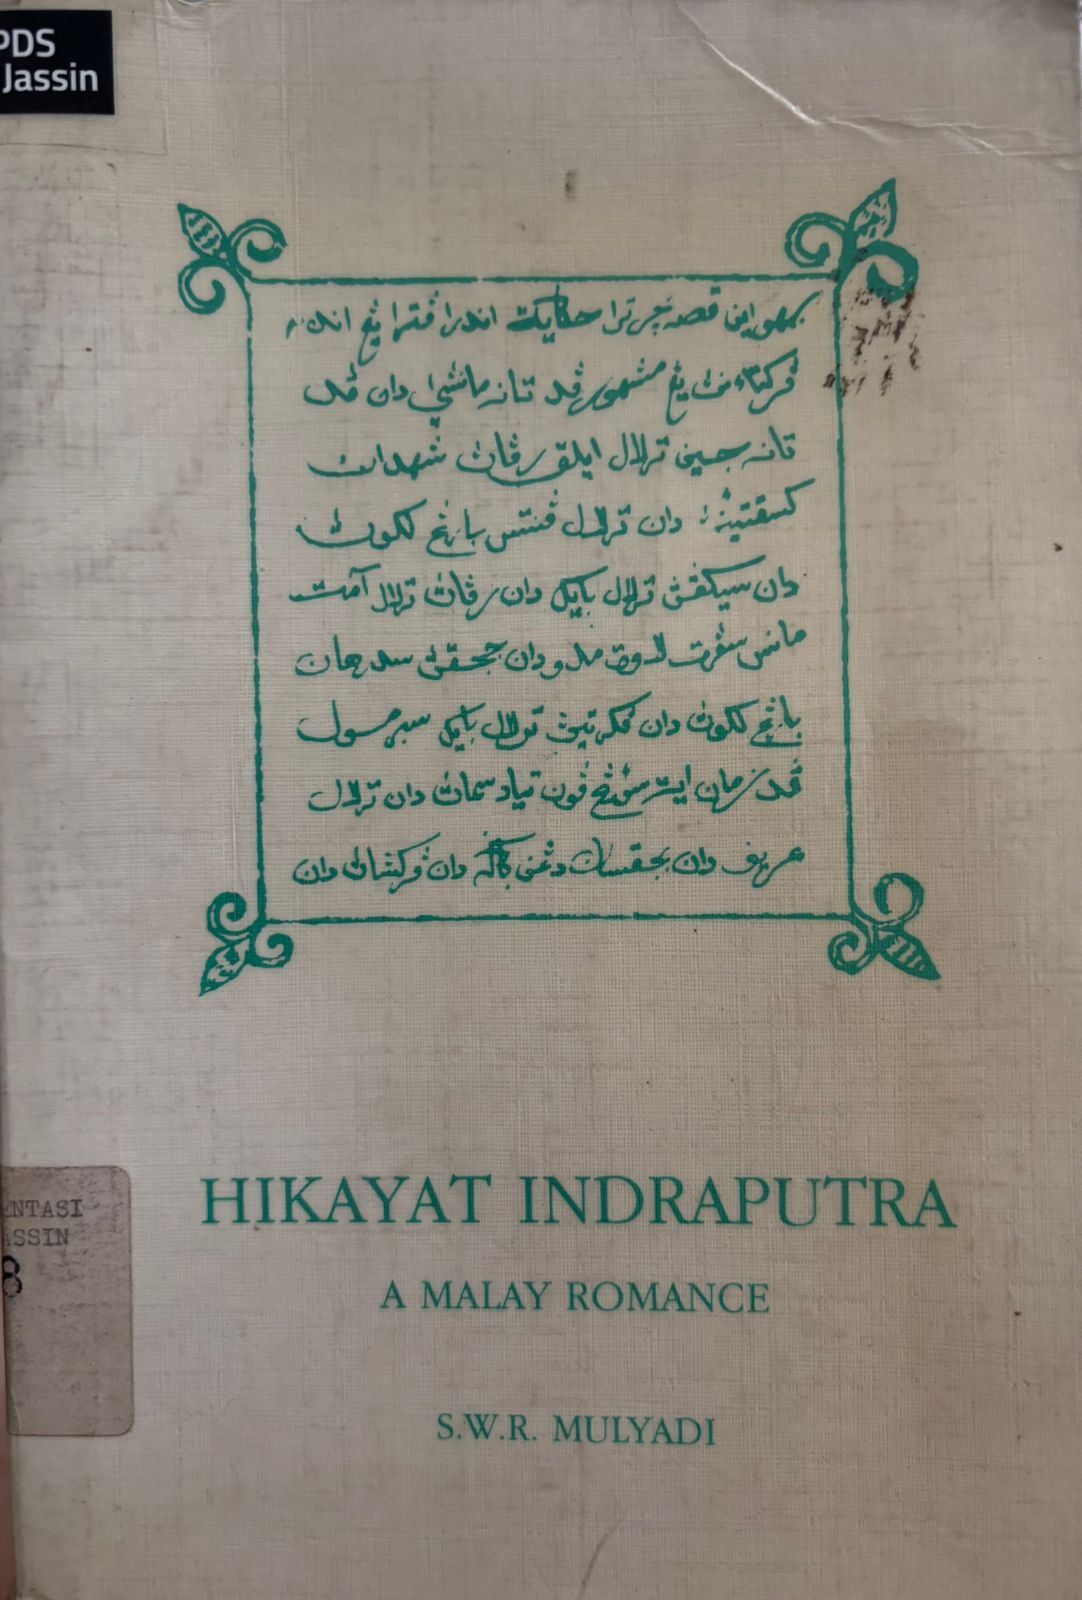 PDS
Jassin
بهو اين قصه چرترا حكايت اندرا فترا يڠ اندہ
ڤركتاءنڽ يڠ مشهور ڤد تانه مانسي دان ڤد
تانه جين ترلال ايلق رڤاڽ شهدان
كسقتينڽ دان ترلال ڤنتس بارڠ لكوڽ
دان سيكفڽ ترلال بايك دان رڤاڽ ترلال امت
مانس سڤرت لاوت مدو دان چچقڽ سدرهان
بارڠ لكوڽ دان ڤكرتيڽ ترلال بايك سبرمول
ڤد زمان ايت سؤرڠ ڤون تياد سماڽ دان ترلال
عريف دان بجقسان دڠن ڤركتاڽ دان
ENTASI
ASSIN
8
HIKAYAT INDRAPUTRA
A MALAY ROMANCE
S.W.R. MULYADI